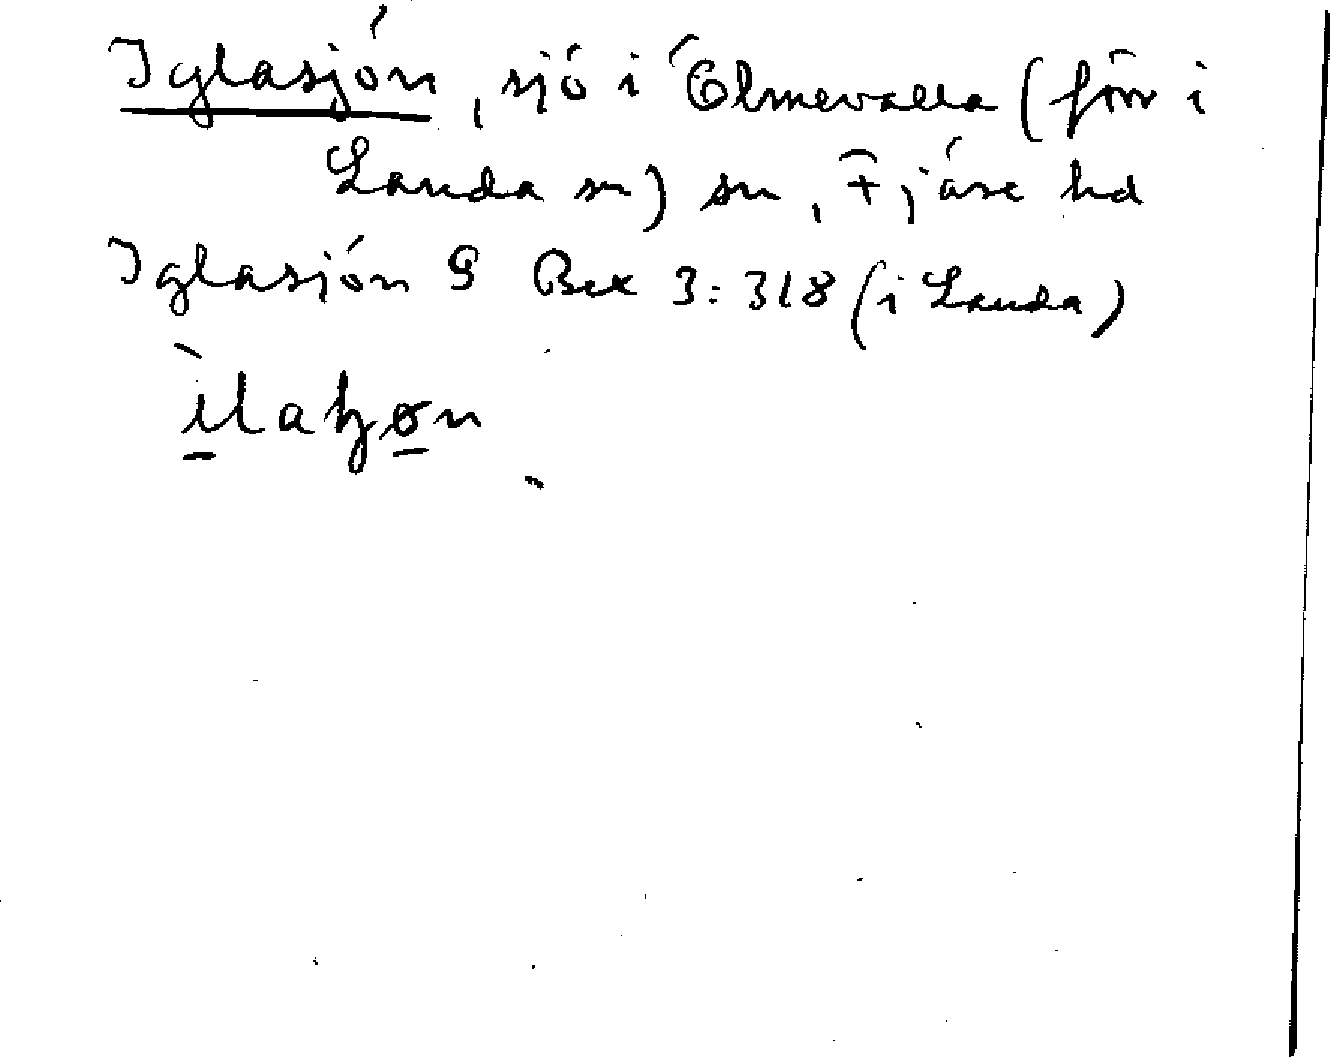 Iglasjön, sjö i Ölmevalla (förr i
Landa sn) sn, Fjäre hd
Iglasjön G Bex 3:318 (i Landa)